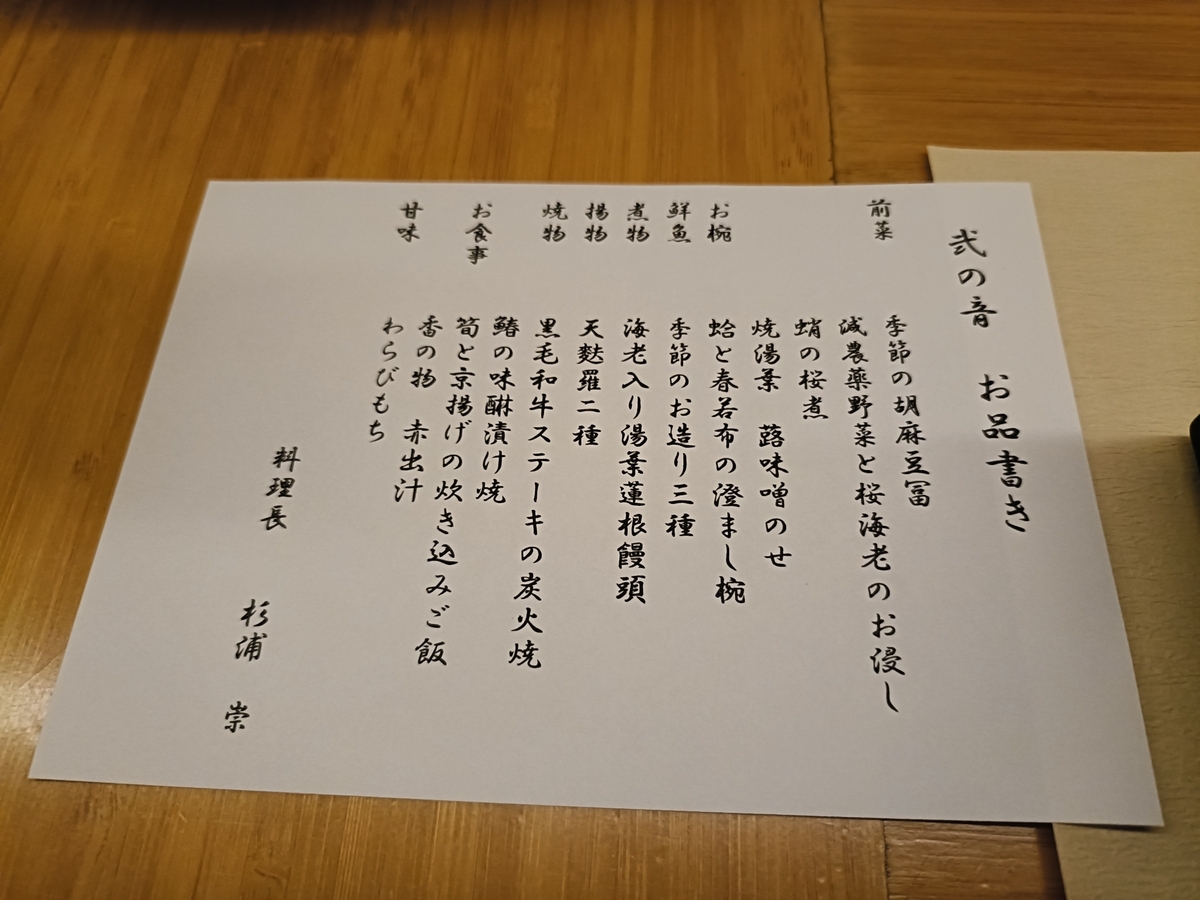 弐の音　お品書き
前菜　季節の胡麻豆冨
減農薬野菜と桜海老のお浸し
蛸の桜煮
焼湯葉　蕗味噌のせ
お椀　蛤と春若布の澄まし椀
鮮魚　季節のお造り三種
煮物　海老入り湯葉蓮根饅頭
揚物　天麩羅二種
焼物　黒毛和牛ステーキの炭火焼
鰆の味醂漬け焼
お食事　筍と京揚げの炊き込みご飯
香の物　赤出汁
甘味　わらびもち
料理長　杉浦　崇